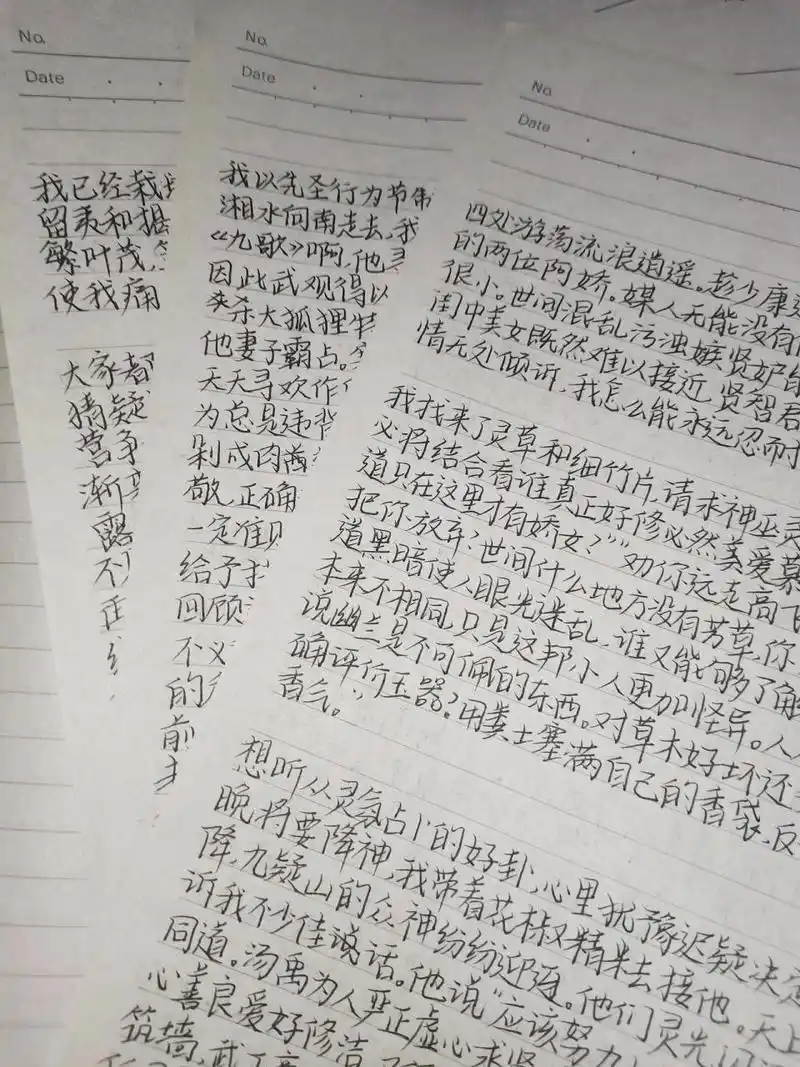 No.
Date
我已经栽
留荑和揭
繁叶茂,
使我痛
大家都
猜疑
营争
渐
露
不
正
No.
Date
我以先圣行为节
湘水向南走去,我
《九歌》啊,他
因此武观得以
夹杀大狐狸
他妻子霸占。
天天寻欢作
为总是违背
剁成肉酱
敬,正确
一定准
给予
回顾
不义
的
前
No.
Date
四处游荡流浪逍遥。趁少康
的两位阿娇。媒人无能没有
很小。世间混乱污浊嫉贤妒
闺中美女既然难以接近,贤智君
情无处倾诉,我怎么能永远忍耐
我找来了灵草和细竹片,请求神巫灵
必将结合看谁真正好修必然美爱慕
道只在这里才有娇女?”“劝你远走高飞
把你放弃?世间什么地方没有芳草,你
道黑暗使人眼光迷乱,谁又能够了解
本来不相同,只是这邦小人更加怪异。人人
说幽兰是不可佩的东西。对草木好坏还
确评价玉器?用粪土塞满自己的香袋,反
香气。”
想听从灵氛占卜的好卦,心里犹豫迟疑决定
晚将要降神,我带着花椒精米去接他。天上
降,九疑山的众神纷纷迎迓。他们灵光闪
诉我不少佳谈话。他说“应该努力
同道。汤禹为人严正虚心求贤
心善良爱好修洁
筑墙,武丁